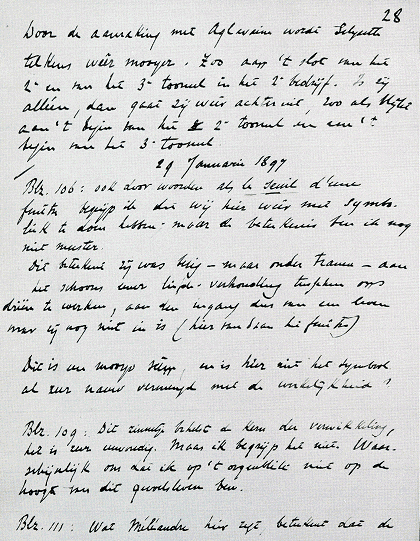 28
Door de aanraking met Aglavaine wordt Selysette
telkens weêr mooyer. Zoo aan 't slot van het
2e en van het 3e tooneel in het 2e bedrijf. Is zij
alléén, dan gaat zij weêr achteruit, zoo als blijkt
aan 't begin van het 2e tooneel en aan 't
begin van het 3e tooneel
29 Januarie 1897
Blz. 106: ook door woorden als le seuil d'une
fenêtre begrijp ik dat wij hier weêr met symbo-
liek te doen hebben - maar de beteekenis ben ik nog
niet meester.
Dit beteekent zij was bezig - maar onder tranen - aan
het schoone eener liefde-verhouding tusschen ons
driëen te werken, aan den ingang dus van een leven
waar zij nog niet in is (hier van daan die fenêtre)
Dit is een mooye, en is hier niet het symbool
al zeer nauw vereenigd met de werkelijkheid?
Blz. 109: Dit zinnetje behelst de kern der verwikkeling,
het is zeer eenvoudig. Maar ik begrijp het niet. Waar-
schijnlijk om dat ik op 't oogenblik niet op de
hoogte van dit gevoelsleven ben.
Blz. 111: Wat Méléandre hier zegt, beteekent dat de